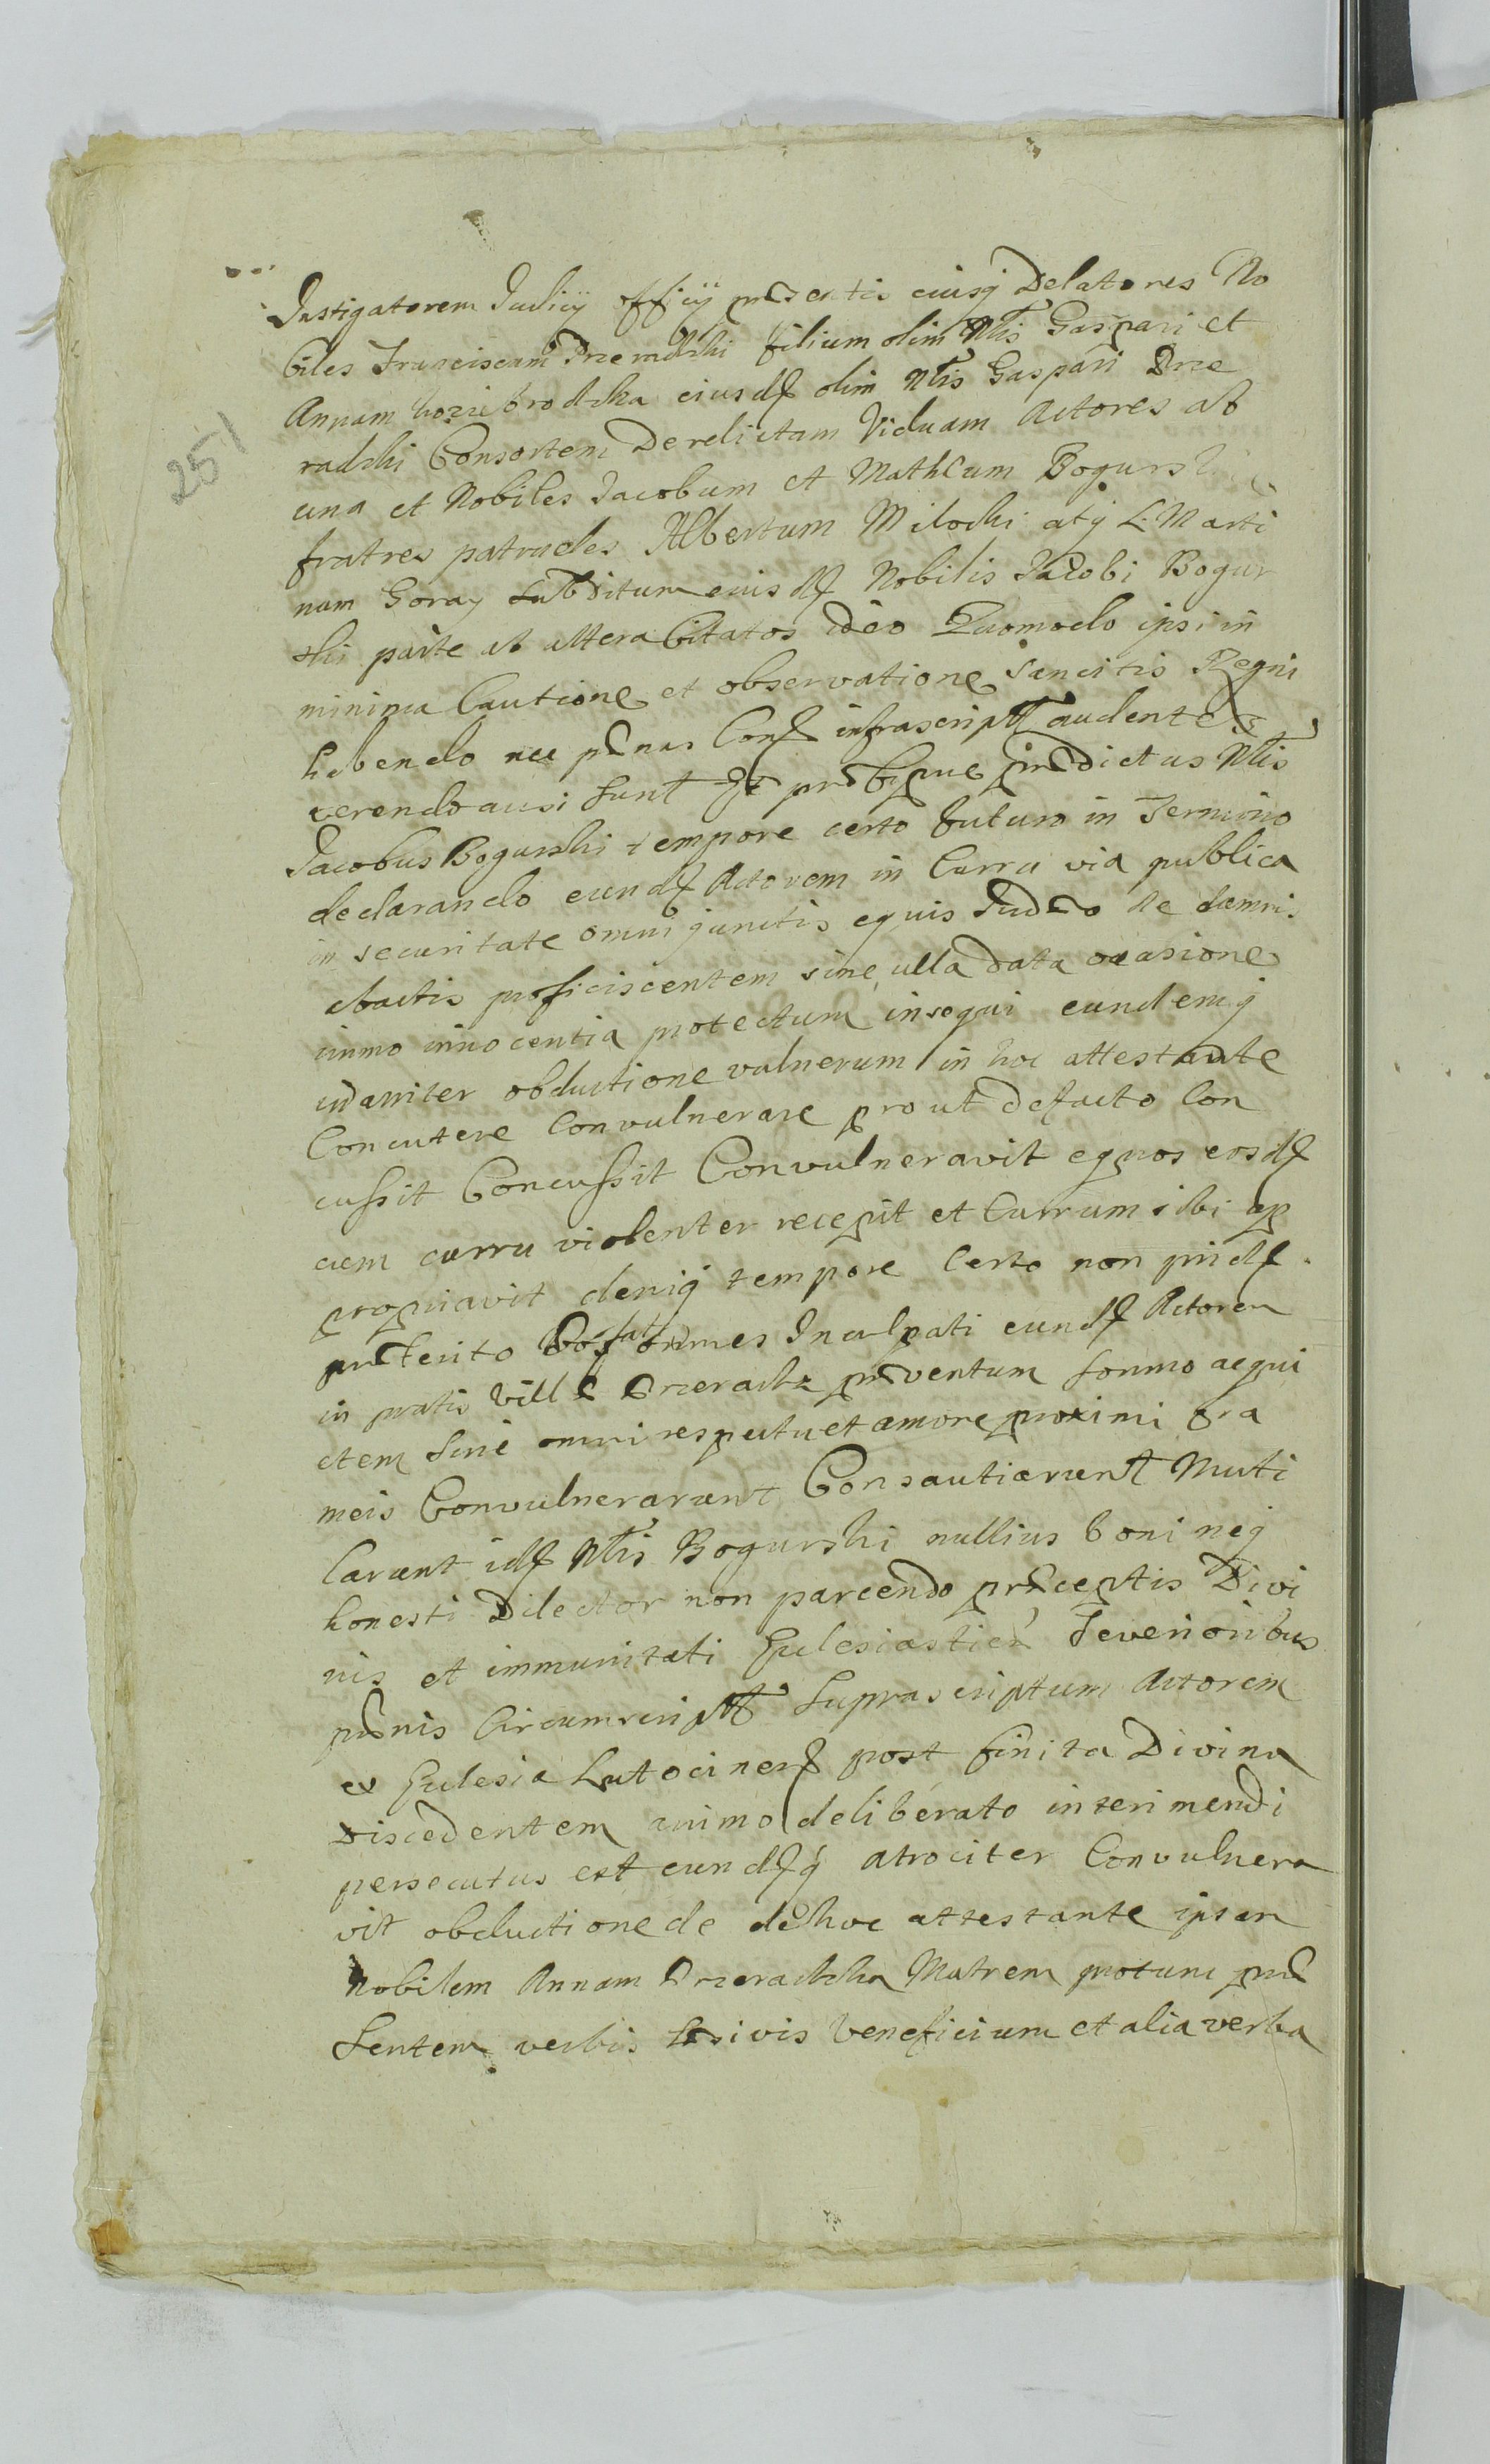 Instigatorem Judicij officij præsentis eiusq Delatores No
biles Franciscum Drzewdzki filium olim Nlis Gaspari et
Annam kozie brodzka eiusdf olim Nlis Gaspari Drze
radzki Consortem Derelictam Viduam Actores ab
una et Nobiles Jacobum et Mathæum Bogurski
fratres patrueles Albertum Milocki atq L. Marti
num Goray subditum eiusdf Nobilis Jacobi Bogur
ski parte ab altera Citatos ideo Quomodo ipsi in
minima Cautione et observatione sancitis Regni
habendo nec pænas Conf infrascriptt audentes
verendo ausi sunt Et præbque prædictus Nlis
Jacobus Bogurski tempore certo futuro in Termino
declarando eundf Actorem in Curru via publica
in securitate omni junctis equis Judæo de
proficiscentem sine ulla data occasione
immo innocentia protectum insequi eundemq
idauriter obductione vulnerum in hoc attestante
Concutere Convulnerare prout defacto Con
cussit Concussit Convulneravit equos eosdf
cum curru violenter recepit et Currum sibi ap
propriavit deniq tempore Certo non pridf
præterito omnes Inculpati eundf Actorem
in pratis Villæ Drzeradz præventum somno acqui
etem sine omni respectu et amore proximi fra
meis Convulnerarunt Consautiarunt Muti
larunt idf Nlis Bogurski nullius boni neq
honesti Dilector non parcendo præceptis Divi
nis et immunitati Eclesiasticæ severioribus
pænis Circumscriptt supra scriptum Actorem
ex Eclesia Lutocinenf post finita Divina
Discedentem animo deliberato interimendi
persecutus est eundfq atrociter Convulnera
vit obductione de dehoc attestante ipsam
Nobilem Annam Drzeradzka Matrem protunc præ
sentem verbis læsivis Veneficium et alia verba
251